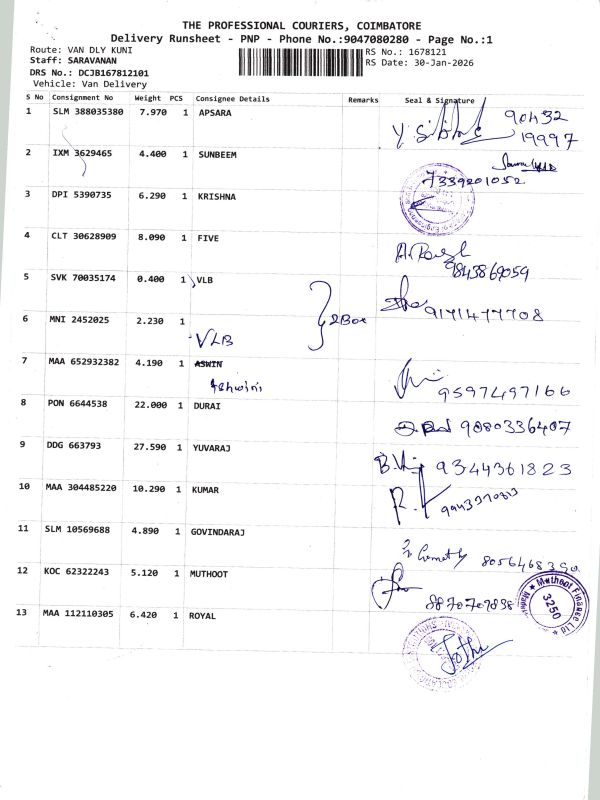 THE PROFESSIONAL COURIERS, COIMBATORE
Delivery Runsheet - PNP - Phone No.:9047080280 - Page No.:1
Route: VAN DLY KUNI
RS No.: 1678121
Staff: SARAVANAN
RS Date: 30-Jan-2026
DRS No.: DCJB167812101
Vehicle: Van Delivery
S No Consignment No Weight PCS Consignee Details Remarks Seal & Signature
1 SLM 388035380 7.970 1 APSARA 90432
19997
2 IXM 3629465 4.400 1 SUNBEEM
7339201052
3 DPI 5390735 6.290 1 KRISHNA
4 CLT 30628909 8.090 1 FIVE
9843869059
5 SVK 70035174 0.400 1 VLB
2Box 9171477708
6 MNI 2452025 2.230 1
VLB
7 MAA 652932382 4.190 1 ASWIN
9597497166
8 PON 6644538 22.000 1 DURAI
9080336407
9 DDG 663793 27.590 1 YUVARAJ
9344361823
10 MAA 304485220 10.290 1 KUMAR
11 SLM 10569688 4.890 1 GOVINDARAJ
12 KOC 62322243 5.120 1 MUTHOOT
8870707898
Muthoot Finance Ltd
3250
13 MAA 112110305 6.420 1 ROYAL
Jothi